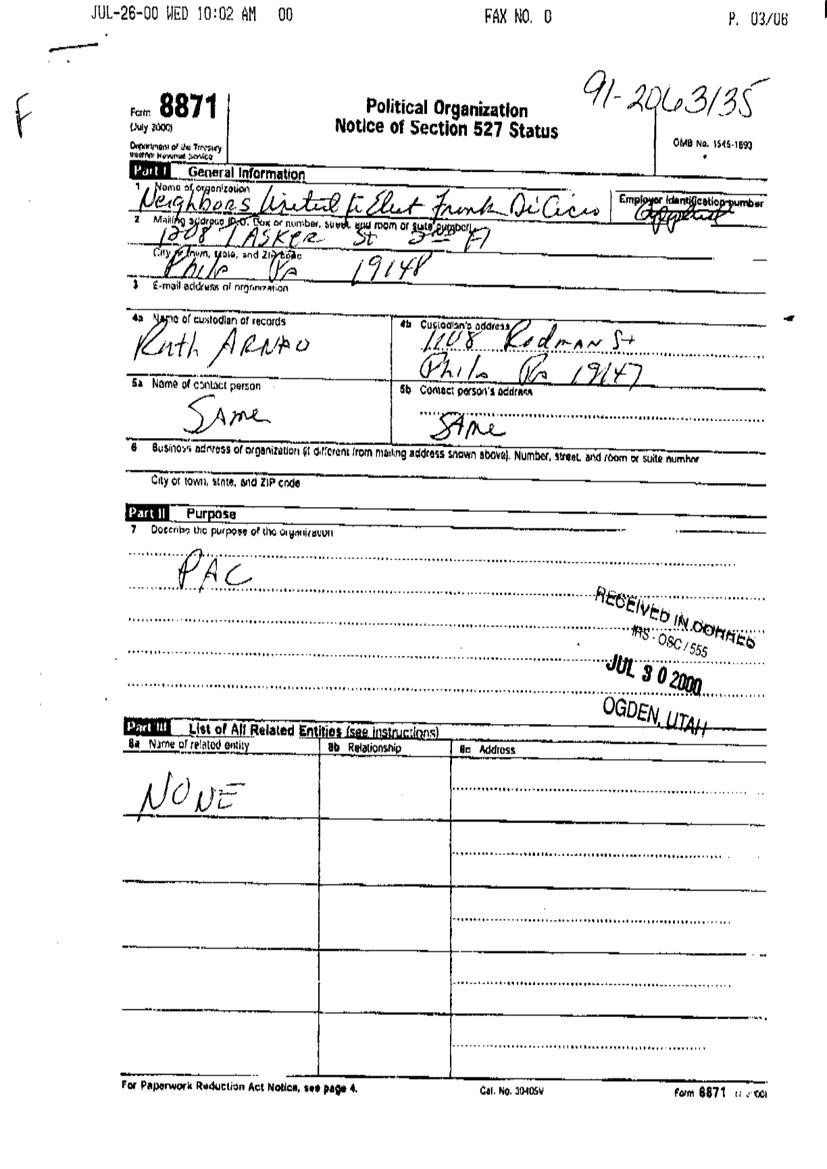 JUL-26-00 WED 10:02 AM 00 FAX NO. 0 P. 03/06
F
91-2063135
Form 8871
(July 2000)
Department of the Treasury
Internal Revenue Service
Political Organization
Notice of Section 527 Status
OMB No. 1545-1693
Part I General Information
1 Name of organization
Neighbors United to Elect Frank DiCicco
Employer identification number
applied
2 Mailing address (P.O. Box or number, street, and room or suite number)
1208 TASKER St 2nd Fl
City or town, state, and ZIP code
Phila Pa 19148
3 E-mail address of organization
4a Name of custodian of records
Ruth ARNAO
4b Custodian's address
1108 Rodman St
Phila Pa 19147
5a Name of contact person
SAme
5b Contact person's address
SAme
6 Business address of organization (if different from mailing address shown above). Number, street, and room or suite number
City or town, state, and ZIP code
Part II Purpose
7 Describe the purpose of the organization
PAC
RECEIVED IN CORRES
IRS - OSC / 555
JUL 30 2000
OGDEN, UTAH
Part III List of All Related Entities (see instructions)
8a Name of related entity 8b Relationship 8c Address
NONE
For Paperwork Reduction Act Notice, see page 4. Cat. No. 30405V Form 8871